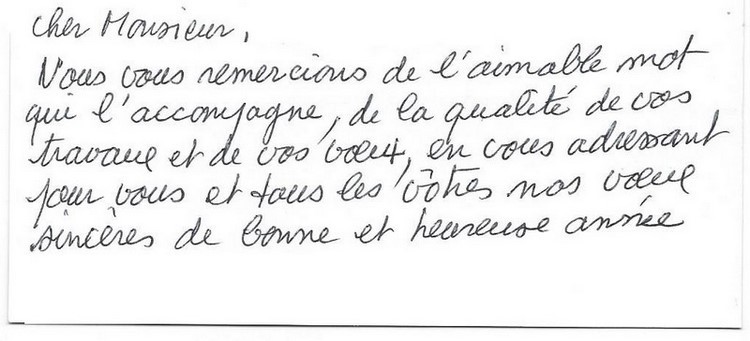 Cher Monsieur,
Nous vous remercions de l'aimable mot
qui l'accompagne, de la qualité de vos
travaux et de vos vœux, en vous adressant
pour vous et tous les vôtres nos vœux
sincères de bonne et heureuse année